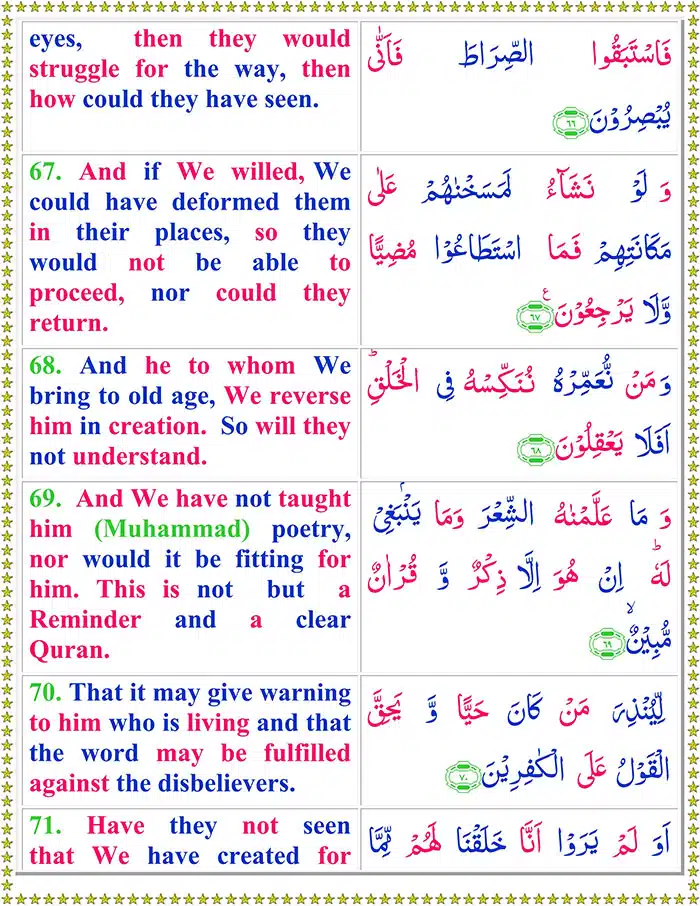 eyes, then they would
struggle for the way, then
how could they have seen.
فَاسْتَبَقُوا الصِّرَاطَ فَاَنّٰى
يُبْصِرُوْنَ ﴿٦٦﴾
67. And if We willed, We
could have deformed them
in their places, so they
would not be able to
proceed, nor could they
return.
وَ لَوْ نَشَآءُ لَمَسَخْنٰهُمْ عَلٰى
مَكَانَتِهِمْ فَمَا اسْتَطَاعُوْا مُضِيًّا
وَّلَا يَرْجِعُوْنَ ۧ ﴿٦٧﴾
68. And he to whom We
bring to old age, We reverse
him in creation. So will they
not understand.
وَمَنْ نُّعَمِّرْهُ نُنَكِّسْهُ فِى الْخَلْقِ ؕ
اَفَلَا يَعْقِلُوْنَ ﴿٦٨﴾
69. And We have not taught
him (Muhammad) poetry,
nor would it be fitting for
him. This is not but a
Reminder and a clear
Quran.
وَ مَا عَلَّمْنٰهُ الشِّعْرَ وَمَا يَنْۢبَغِىْ
لَهٗ ؕ اِنْ هُوَ اِلَّا ذِكْرٌ وَّ قُرْاٰنٌ
مُّبِيْنٌ ۙ ﴿٦٩﴾
70. That it may give warning
to him who is living and that
the word may be fulfilled
against the disbelievers.
لِّيُنْذِرَ مَنْ كَانَ حَيًّا وَّ يَحِقَّ
الْقَوْلُ عَلَى الْكٰفِرِيْنَ ﴿٧٠﴾
71. Have they not seen
that We have created for
اَوَ لَمْ يَرَوْا اَنَّا خَلَقْنَا لَهُمْ مِّمَّا